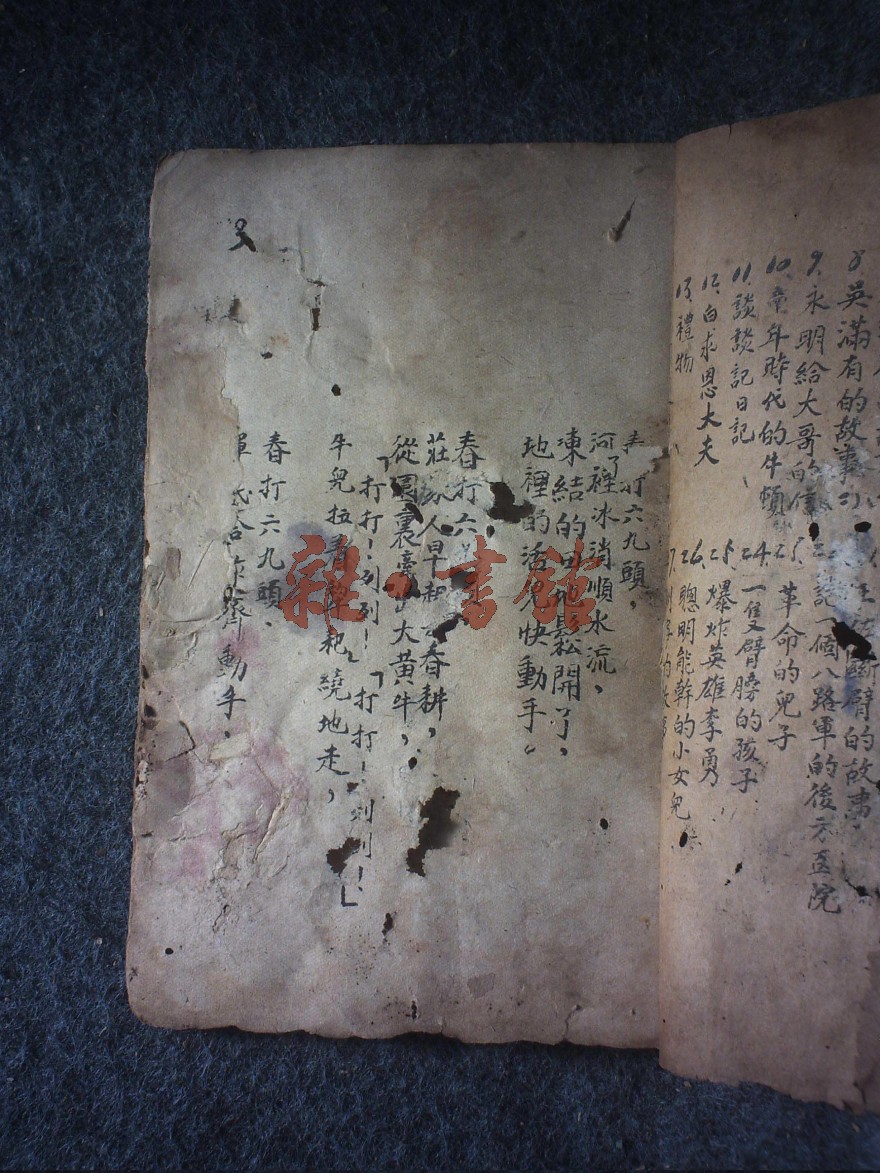 8 吳滿有的故事
9. 永明給大哥的信
10. 童年時代的牛頓
11. 談談記日記
12. 白求恩大夫
13. 禮物
斷臂的故事
記一個八路軍的後方医院
革命的兒子
24. 一隻臂膀的孩子
25. 爆炸英雄李勇
26. 聰明能幹的小女兒
打六九頭，
河裡冰消順水流、
凍結的田地鬆開了、
地裡的活兒快動手。
春打六
莊人早起春耕，
從圈裏牽出大黃牛，
「打打！列列！」「打打！列列！」
牛兒拉着犂耙繞地走，
春打六九頭、
合作齊動手、
雜·書館